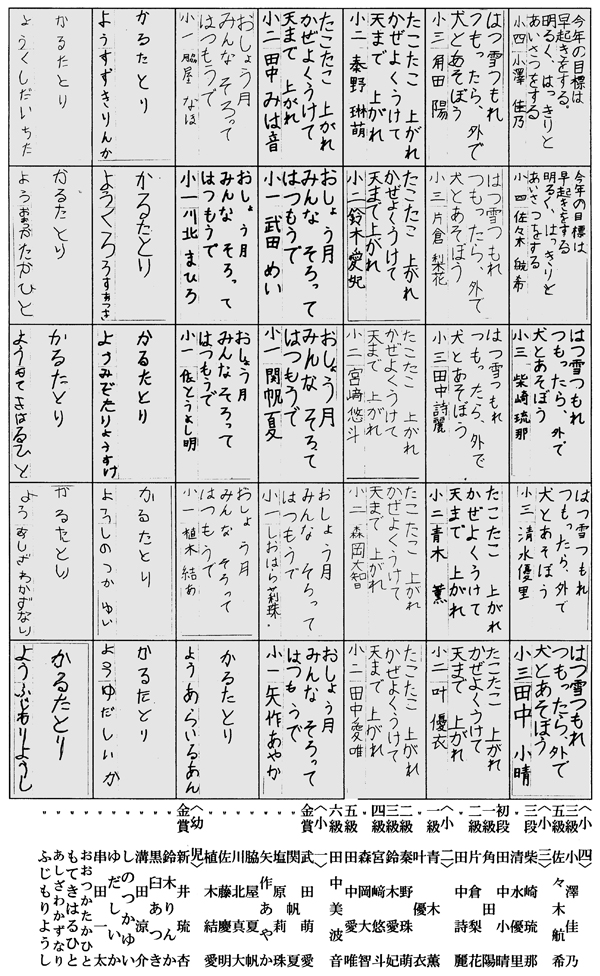 今年の目標は
早起きをする。
明るく、はっきりと
あいさつをする
小四 小澤 佳乃
はつ雪つもれ
つもったら、外で
犬とあそぼう
小三 角田 陽
たこたこ 上がれ
かぜよくうけて
天まで 上がれ
小二 秦野 琳萌
たこたこ 上がれ
かぜよくうけて
天まで 上がれ
小二 田中 みは音
おしょう月
みんな そろって
はつもうで
小一 脇屋 なほ
かるたとり
ようすずきりんか
かるたとり
ようくしだいちた
今年の目標は
早起きをする
明るく、はっきりと
あいさつをする
小四 佐々木 航希
はつ雪つもれ
つもったら、外で
犬とあそぼう
小三 片倉 梨花
たこたこ 上がれ
かぜよくうけて
天まで上がれ
小二 鈴木 愛妃
おしょう月
みんな そろって
はつもうで
小一 武田 めい
おしょう月
みんな そろって
はつもうで
小一 川北 まひろ
かるたとり
かるたとり
はつ雪つもれ
つもったら、外で
犬とあそぼう
小三 柴崎 琉那
はつ雪つもれ
つもったら、外で
犬とあそぼう
小三 田中 詩麗
たこたこ 上がれ
かぜよくうけて
天まで 上がれ
小二 宮﨑 悠斗
おしょう月
みんな そろって
はつもうで
小一 関 帆夏
おしょう月
みんな そろって
はつもうで
小一 佐とうよし明
かるたとり
ようみぞたりょうすけ
かるたとり
ようもてきはるひと
はつ雪つもれ
つもったら、外で
犬とあそぼう
小三 清水 優里
たこたこ 上がれ
かぜよくうけて
天まで 上がれ
小二 青木 薫
たこたこ 上がれ
かぜよくうけて
天まで 上がれ
小二 森岡 大智
おしょう月
みんな そろって
はつもうで
小一 しおはら莉珠
おしょう月
みんな そろって
はつもうで
小一 植木 結あ
かるたとり
ようしのつか ゆい
かるたとり
はつ雪つもれ
つもったら、外で
犬とあそぼう
小三 田中 小晴
たこたこ 上がれ
かぜよくうけて
天まで 上がれ
小二 叶 優衣
たこたこ 上がれ
かぜよくうけて
天まで 上がれ
小二 田中 愛唯
おしょう月
みんな そろって
はつもうで
小一 矢作あやか
かるたとり
ようあらいるあん
かるたとり
ようゆだしいか
かるたとり
ようふじもりようし
〈小四〉
三級 小澤佳乃
五級 佐々木航希
〈小三〉
三段 柴崎琉那
〃 清水優里
初段 田中小晴
一級 角田陽
二級 片倉梨花
〃 田中詩麗
〈小二〉
一級 青木薫
〃 叶優衣
二級 秦野琳萌
三級 鈴木愛妃
四級 宮﨑悠斗
〃 森岡大智
五級 田中愛唯
六級 田中美波音
〈小一〉
金賞 武田萌
〃 関帆夏
〃 塩原莉珠
〃 矢作あやか
〃 脇屋夏帆
〃 川北真大
〃 佐藤慶明
〃 植木結愛
〈幼児〉
金賞 新井琉杏
〃 鈴木りんか
〃 黒臼あつき
〃 溝田涼介
〃 しのつかゆい
〃 ゆだしいか
〃 串田一太
〃 おおつかたかひと
〃 もてきはるひと
〃 あしざわかずなり
〃 ふじもりようし